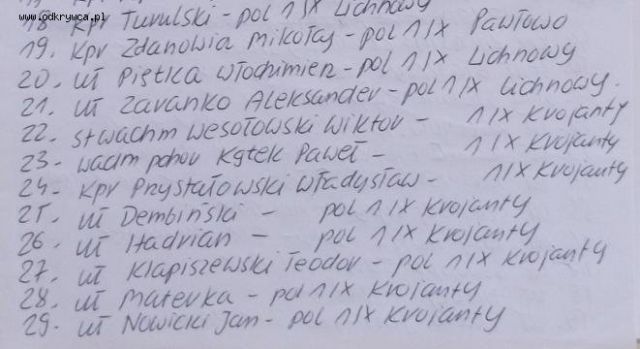 www.odkrywca.pl
18. kpr Turulski - pol 1 IX Lichnowy
19. kpr Zdanowia Mikołaj - pol 1 IX Pawłowo
20. uł Piętka Włodzimierz - pol 1 IX Lichnowy
21. uł Zavanko Aleksander - pol 1 IX Lichnowy.
22. st wachm Wesołowski Wiktor - 1 IX Krojanty
23 - wachm pchor Kątek Paweł - 1 IX Krojanty
24 - kpr Przystałowski Władysław - 1 IX Krojanty
25. uł Dembiński - pol 1 IX Krojanty
26. uł Hadrian - pol 1 IX Krojanty
27. uł Kłapiszewski Teodor - pol 1 IX Krojanty
28. uł Materka - pol 1 IX Krojanty
29. uł Nowicki Jan - pol 1 IX Krojanty